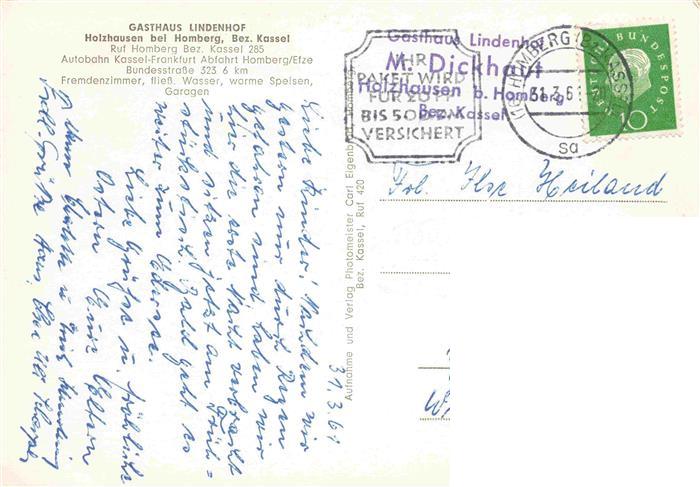 GASTHAUS LINDENHOF
Holzhausen bei Homberg, Bez. Kassel
Ruf Homberg Bez. Kassel 285
Autobahn Kassel-Frankfurt Abfahrt Homberg/Efze
Bundesstraße 323 6 km
Fremdenzimmer, fließ. Wasser, warme Speisen,
Garagen
31.3.61
Liebe Kinder! Nachdem wir
gestern nur durch Regen
gefahren sind haben wir
hier die erste Nacht verbracht
und sitzen jetzt am Früh=
stückstisch. Bald geht es
weiter zum Edersee.
Liebe Grüsse u. fröhliche
Ostern Eure Eltern
Aufnahme und Verlag Photomeister Carl Eigenbrod
Bez. Kassel, Ruf 420
IHR
PAKET WIRD
FÜR 20 PF
BIS 500 DM
VERSICHERT
Gasthaus Lindenhof
M. Dickhaut
Holzhausen b. Homberg
Bez. Kassel
HOMBERG (BZ KASSEL)
31.3.61
sa
DEUTSCHE BUNDESPOST
10
Frl. Ilse Heiland